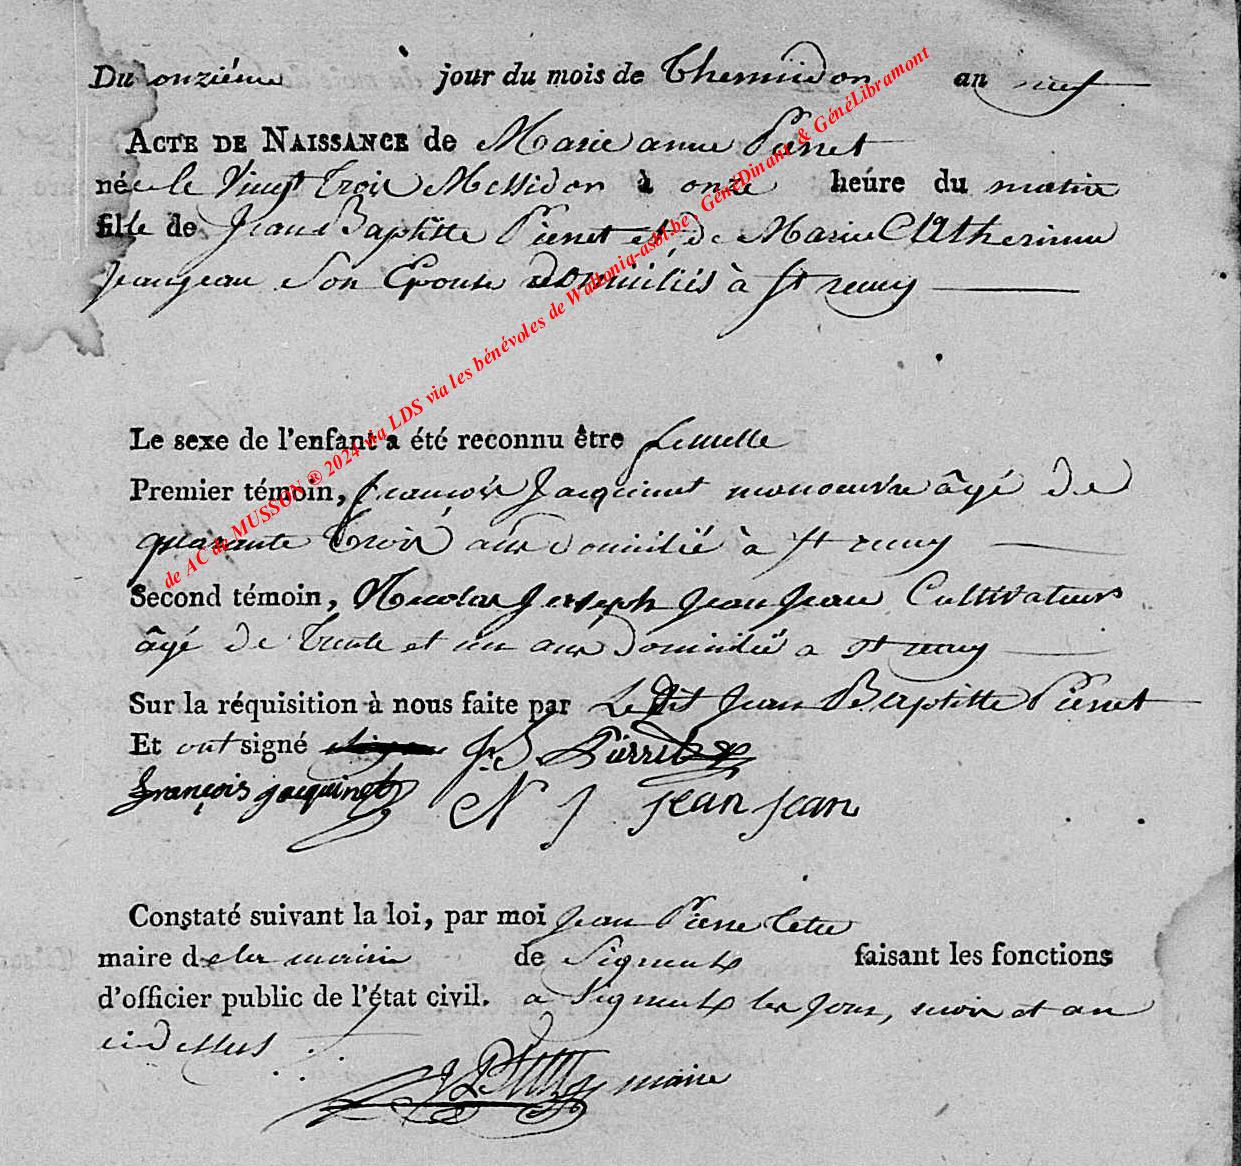 Du onziéme jour du mois de Thermidor an neuf
ACTE DE NAISSANCE de Marie anne Pierret
née le Vingt trois Messidor à onze heure du matin
fille de Jean Baptiste Pierret et de Marie Catherinne
Jeanjean son Epouse domiciliés à St remy
Le sexe de l'enfant a été reconnu être femelle
Premier témoin, françois Jacquinet manoeuvre âgé de
quarante trois ans domicilié à St remy
Second témoin, Nicolas Joseph Jean Jean Cultivateur
âgé de trente et un ans domicilié a St remy
Sur la réquisition à nous faite par Ledit Jean Baptitte Pierret
Et ont signé J. B. Pierret
françois jacquinet N J jean jean
Constaté suivant la loi, par moi Jean Pierre
maire de la mairie de Signeulx faisant les fonctions
d'officier public de l'état civil. a Signeulx les Jour, mois et an
ci dessus
maire
de AC de MUSSON ® 2024 via LDS via les bénévoles de Wallonia-asbl.be - GénéDinant & GénéLibramont